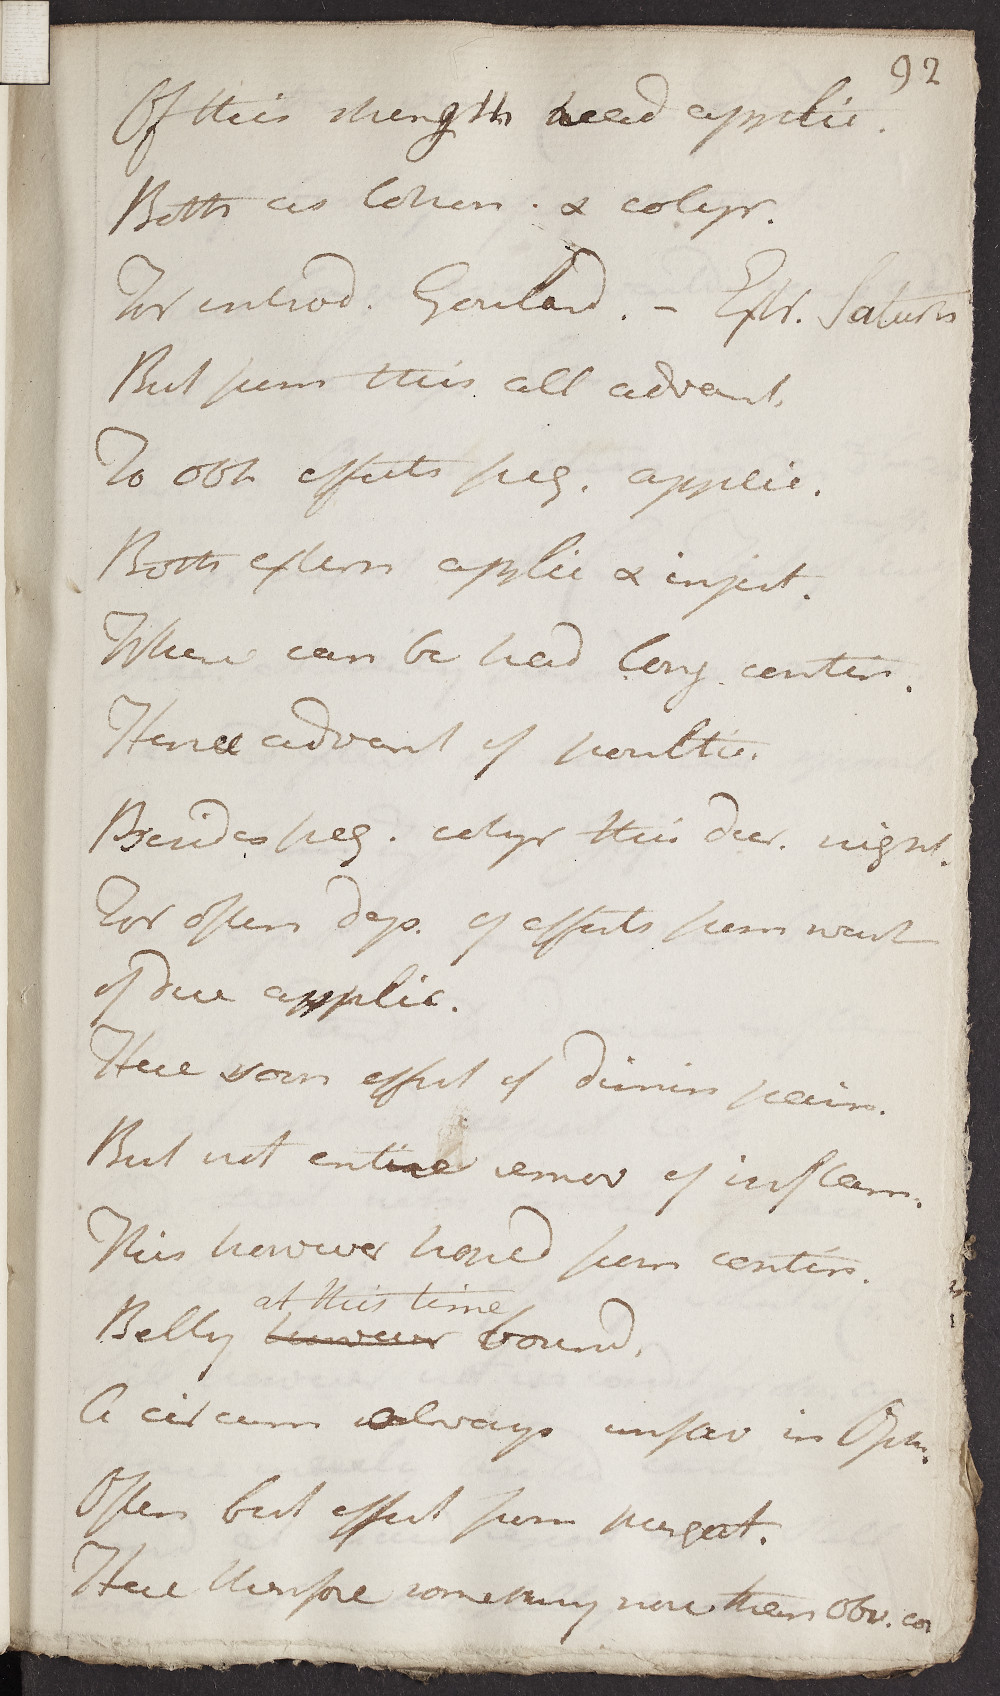 92
Of this strength head applic.
Both as lotion. & colyr.
For introd. Goulard. - Extr. Saturn
But from this all advant.
To obt effects freq. applic.
Both extern applic & inject.
Where can be had long contin.
Hence advant of poultic.
Besides freq. colyr this dur. night.
For often dep. of effects from want
of due applic.
Here som effect of dimin pain.
But not entire remov of inflam.
This however hoped from contin.
at this time
Belly however bound.
A circum always unfav in Oph.
Often best effect from purgat.
Here therefore something more then obv. co